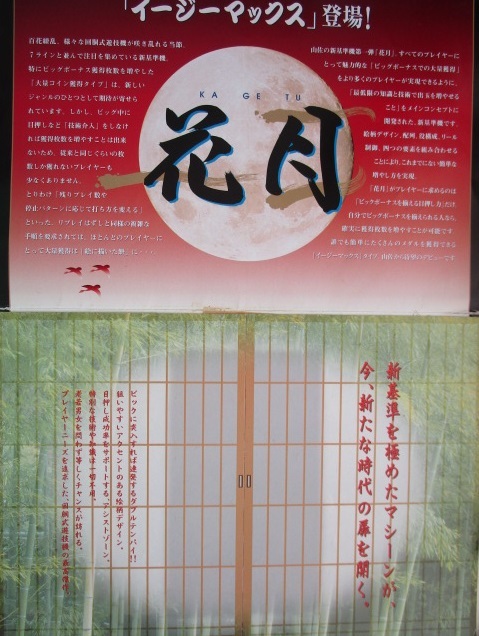 「イージーマックス」登場!
百花繚乱、様々な回胴式遊技機が咲き乱れる当節、
7ラインと並んで注目を集めている新基準機、
特にビッグボーナス獲得枚数を増やした
「大量コイン獲得タイプ」は、新しい
ジャンルのひとつとして期待が寄せら
れています。しかし、ビッグ中に
目押しなど「技術介入」をしなけ
れば獲得枚数を増やすことは出来
ないため、従来と同じぐらいの枚
数しか獲れないプレイヤーも
少なくありません。
とりわけ「残りプレイ数や
停止パターンに応じて打ち方を変える」
といった、リプレイはずしと同様の複雑な
手順を要求されては、ほとんどのプレイヤーに
とって大量獲得は「絵に描いた餅」に…
KA GE TU
花月
山佐の新基準機第一弾「花月」。すべてのプレイヤーに
とって魅力的な「ビッグボーナスでの大量獲得」
をより多くのプレイヤーが実現できるように、
「最低限の知識と技術で出玉を増やせる
こと」をメインコンセプトに
開発された、新基準機です。
絵柄デザイン、配列、役構成、リール
制御、四つの要素を組み合わせる
ことにより、これまでにない簡単な
増やし方を実現。
「花月」がプレイヤーに求めるのは
「ビッグボーナスを揃える目押し力」だけ
自分でビッグボーナスを揃えられる人なら、
確実に獲得枚数を増やすことが可能です
誰でも簡単にたくさんのメダルを獲得できる
「イージーマックス」タイプ 山佐から待望のデビューです
新基準を極めたマシーンが、
今、新たな時代の扉を開く。
ビッグに突入すれば連発するダブルテンパイ!!
狙いやすいアクセントのある絵柄デザイン。
目押し成功率をサポートする、アシストゾーン。
特別な技術や知識は一切不用。
老若男女を問わず等しくチャンスが訪れる。
プレイヤーニーズを追求した、回胴式遊技機の最高傑作。